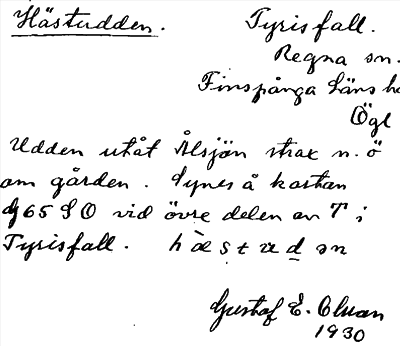 Hästudden. Tyrisfall.
Regna sn.
Finspånga läns h
Ögl
Udden utåt Ålsjön strax n.ö
om gården. Synes å kartan
65 SO vid övre delen av T i
Tyrisfall. hästudən
Gustaf E.
1930